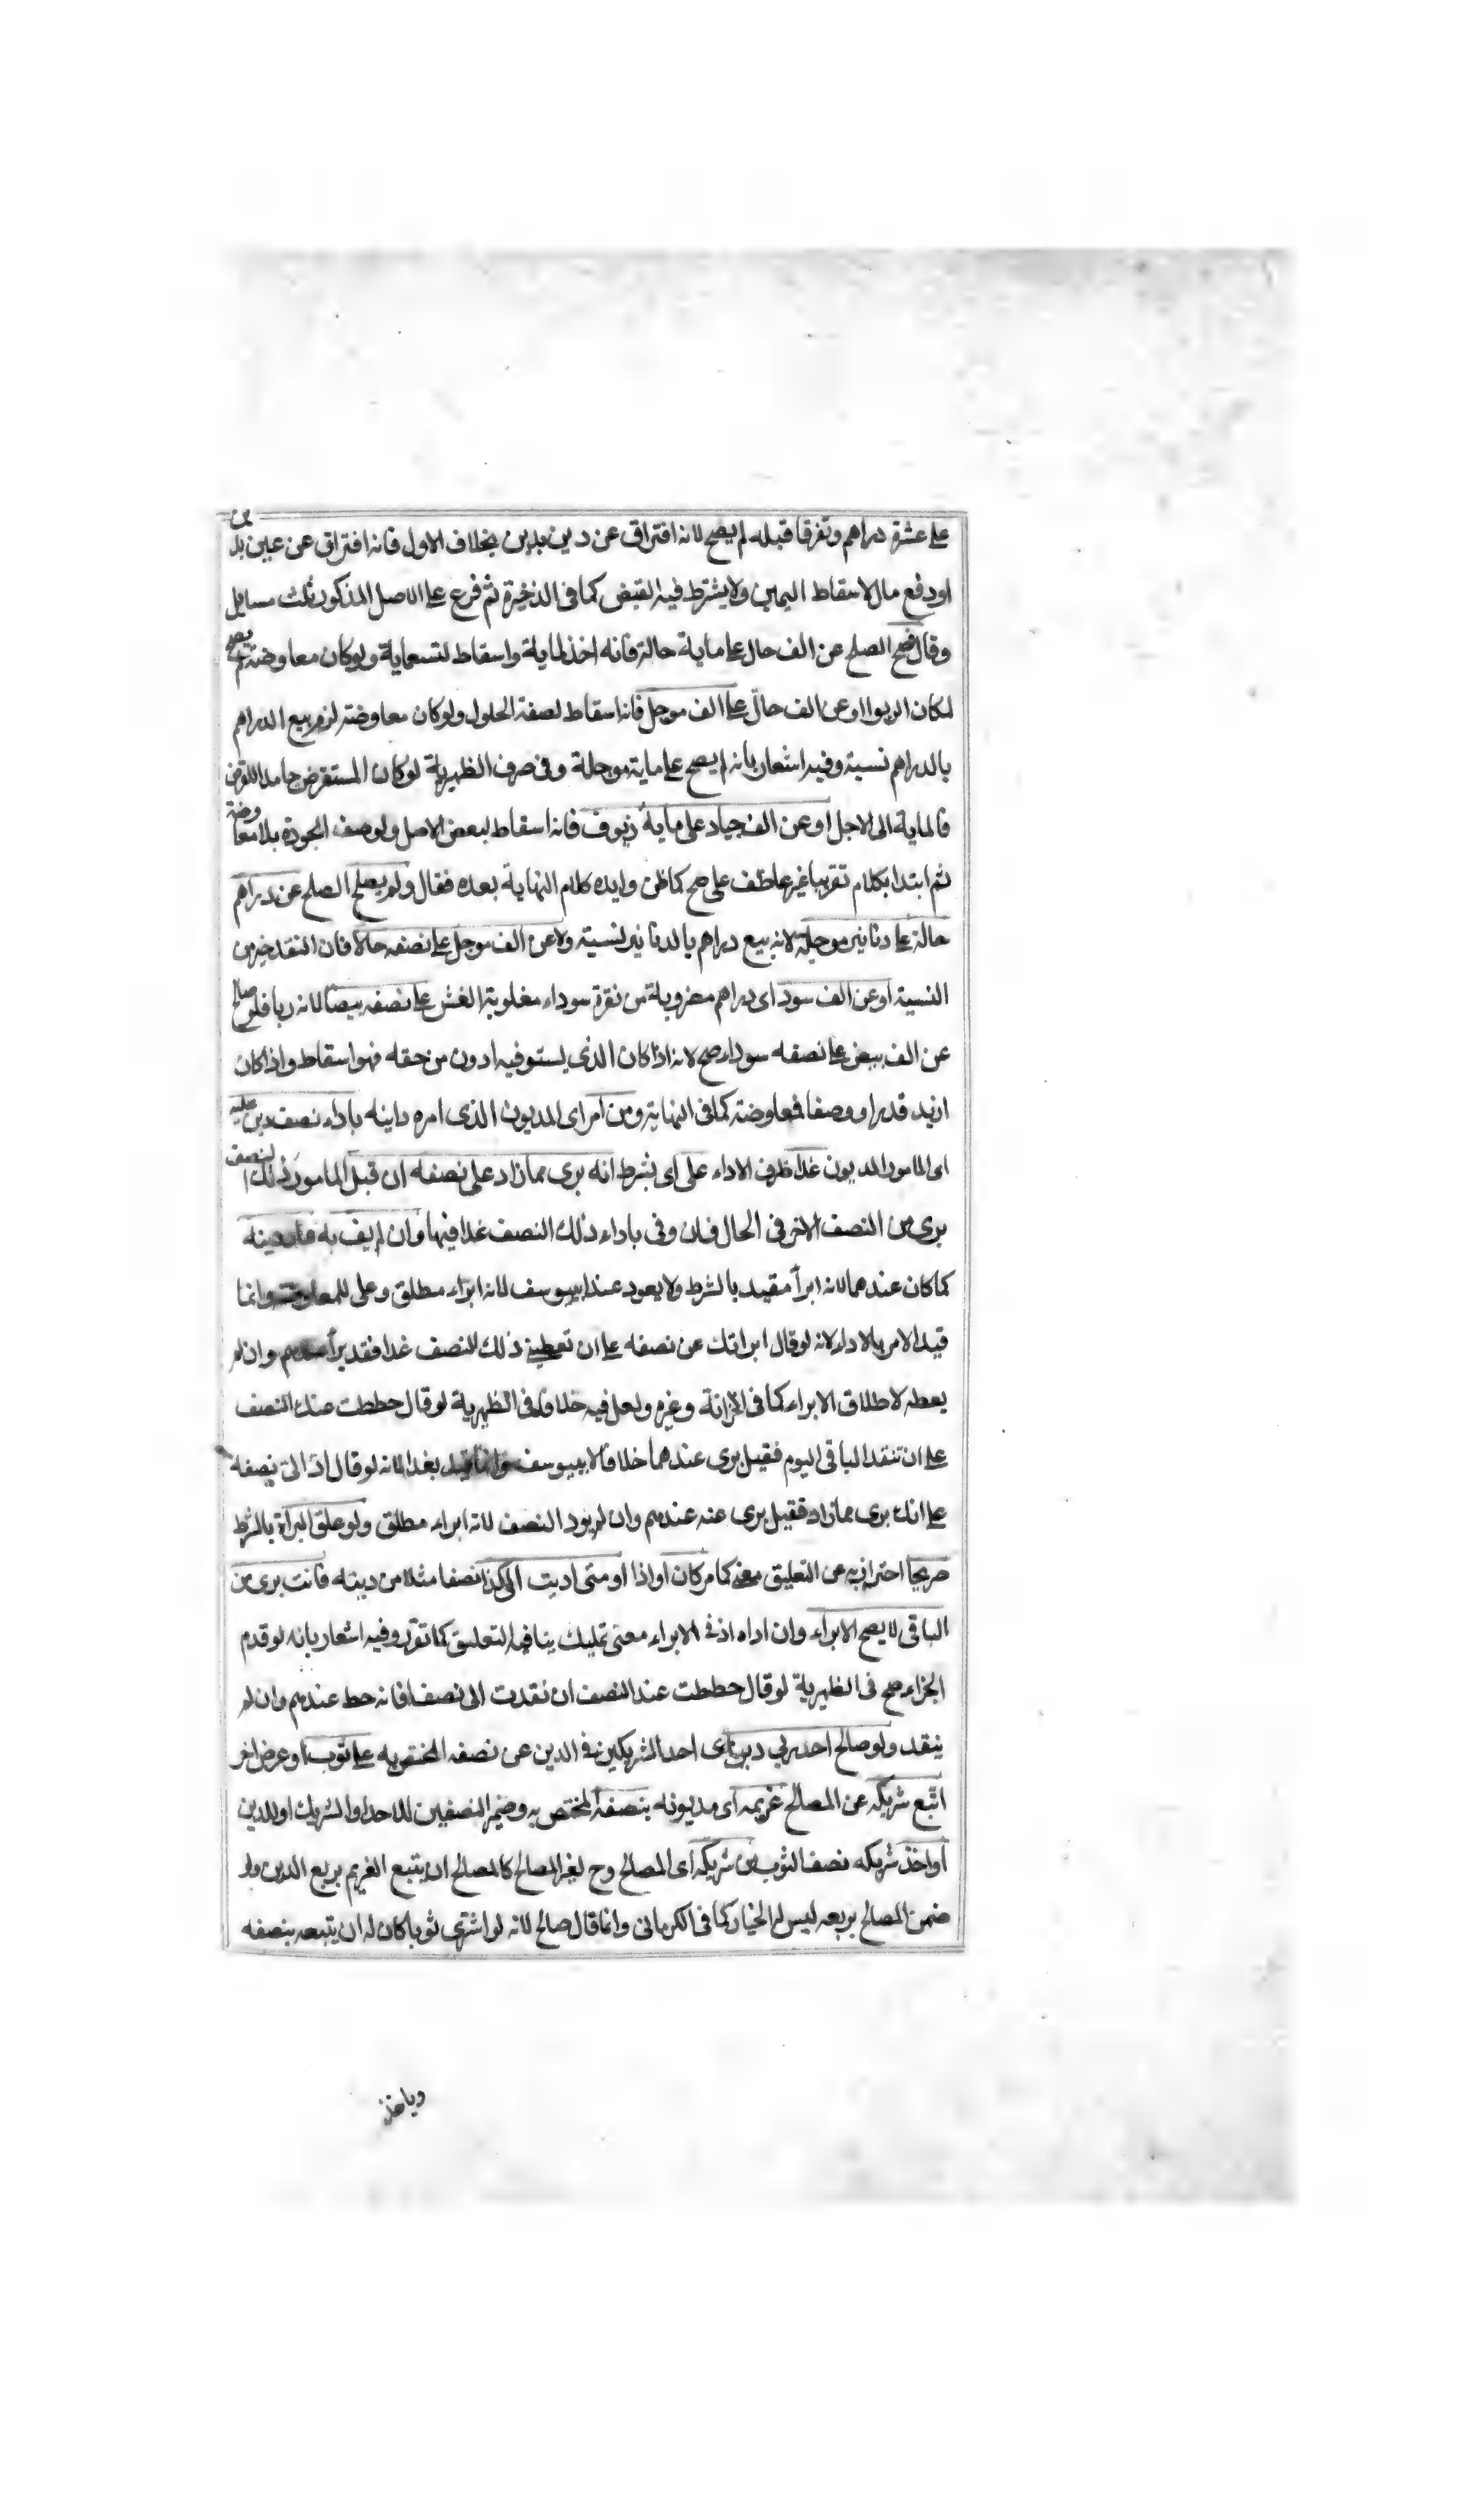 على عشرة دراهم وتفرقا قبله لم يصح لانه افتراق عن دين بدين بخلاف الاول فانه افتراق عن عين بدين
او دفع مال لاسقاط اليمين ولا يشترط فيه القبض كما في الذخيرة ثم فرع على الاصل المذكور ثلث مسايل
وقال فصح الصلح عن الف حال على ماية حالة فانه اخذ لماية واسقاط لتسعماية ولو كان معاوضة لم يصح
لمكان الربوا او عن الف حال على الف موجل فانه اسقاط لصفة الحلول ولو كان معاوضة لزم بيع الدراهم
بالدراهم نسية وفيه اشعار بانه لم يصح على ماية موجلة وفي صرف الظهيرية لو كان المستقرض جاحدا للقرض
فالماية الى الاجل او عن الف جياد على ماية زيوف فانه اسقاط لبعض الاصل ولوصف الجودة بلا معاوضة
ثم ابتدا بكلام تقريبا غير عاطف على صح كما ظن وايده كلام النهاية بعده فقال ولم يصلح الصلح عن دراهم
حالة على دنانير موجلة لانه بيع دراهم بالدنانير نسية ولا عن الف موجل على نصفه حالا فان النقد خير من
النسية او عن الف سود اى دراهم مضروبة من نقرة سوداء مغلوبة الغش على نصفه بيضا لانه ربا فلو صالح
عن الف بيض على نصفه سوداء صح لانه اذا كان الذى يستوفيه ادون من حقه فهو اسقاط واذا كان
ازيد قدرا او وصفا فمعاوضة كما في النهاية ومن امر اى المديون الذى امره داينه باداء نصف دين عليه
اى المامور المديون غدا ظرف الاداء على اى بشرط انه برى مما زاد على نصفه ان قبل المامور ذلك النصف
برى من النصف الاخر في الحال فان وفى باداء ذلك النصف غدا فيها وان لم يف به عاد دينه
كما كان عندهما لانه ابرأ مقيد بالشرط ولا يعود عند ابييوسف لانه ابراء مطلق وعلى للمعاوضة وانما
قيد الامر بالاداء لانه لو قال ابراتك عن نصفه على ان تعطينى ذلك النصف غدا فقد برأ عندهم وان لم
يعطه لاطلاق الابراء كما في الخزانة وغيره ولعل فيه خلافا ففى الظهيرية لو قال حططت عنك النصف
على ان تنقد الباقى اليوم فقيل برى عندهما خلافا لابييوسف وانما قيد بغدا لانه لو قال اد الى نصفه
على انك برى مما زاد فقيل برى عنه عندهم وان لم يود النصف لانه ابراء مطلق ولو علق البرأة بالشرط
صريحا احتراز به عن التعليق معنى كما مر كان او اذا او متى اديت الى كذا نصفا مثلا من دينه فانت برى من
الباقى لا يصح الابراء وان اداه اذ في الابراء معنى تمليك ينافيه التعليق كما تقرر وفيه اشعار بانه لو قدم
الجزاء صح في الظهيرية لو قال حططت عنك النصف ان نقدت الى نصفا فانه حط عندهم وان لم
ينقد ولو صالح احد ربى دين اى احد الشريكين في الدين عن نصفه المختص به على ثوب او عرض اخر
اتبع شريكه عن المصالح غريمه اى مديونه بنصفه المختص به وضمير النصفين للاحد او الشريك او للدين
او اخذ شريكه نصف الثوب من شريكه اى المصالح وح لغير المصالح كالمصالح ان يتبع الغريم بربع الدين ولو
ضمن المصالح بربعه ليس له الخيار كما في الكرمانى وانما قال صالح لانه لو اشترى ثوبا كان له ان يتبعه بنصفه
وياخذ